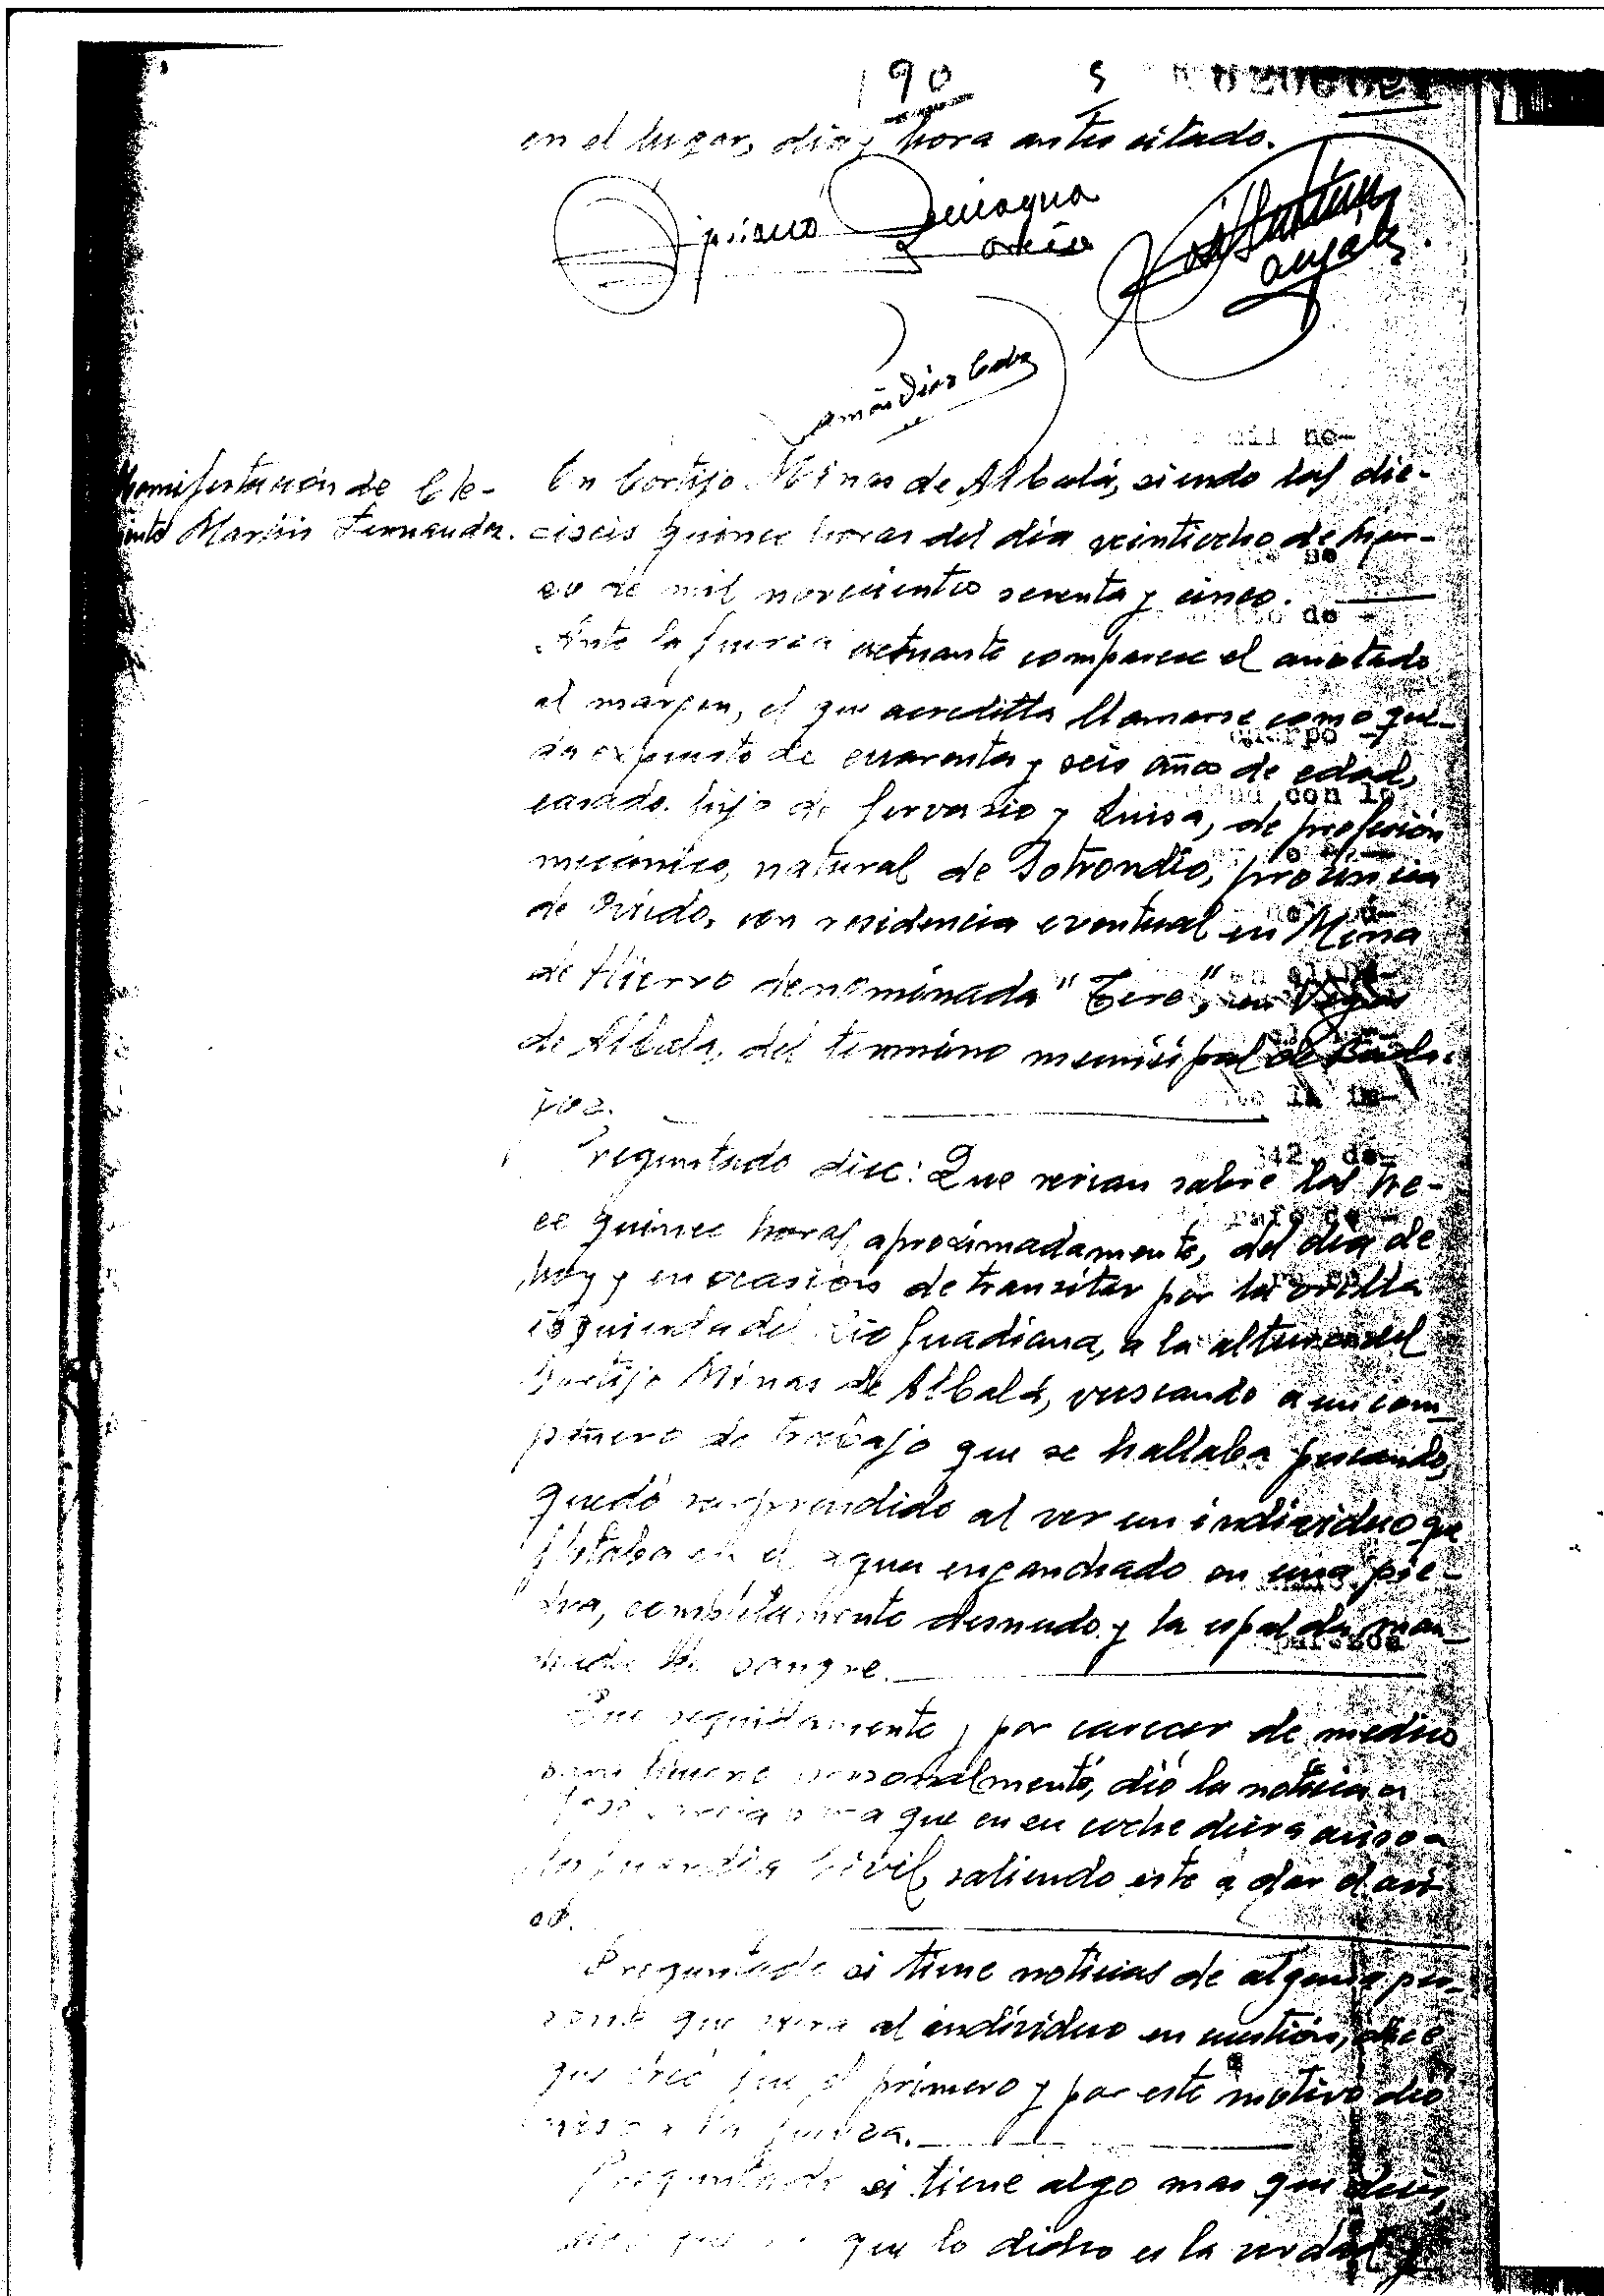 190 5
en el lugar, dia y hora antes citado.
Cipriano
Ramón Díaz
Manifestación de Cle-
mente Martin Fernandez.
En Cortijo Minas de Albalá, siendo las die-
ciseis quince horas del día veintiocho de mar-
zo de mil novecientos setenta y cinco.
Ante la fuerza actuante comparece el anotado
al margen, el que acreditta llamarse como que-
da expuesto de cuarenta y seis años de edad,
casado, hijo de Gervasio y Luisa, de profesión
mecánico, natural de Sotrondio, provincia
de Oviedo, con residencia eventual en Mina
de Hierro denominada "Tere", en Vegas
de Albala, del termino municipal de Bada-
joz.
Preguntado dice: Que serian sobre las tre-
ce quince horas, aproximadamente, del dia de
hoy y en ocasión de transitar por la orilla
izquierda del Rio Guadiana, a la altura del
Cortijo Minas de Albalá, vuscando a un com-
pañero de trabajo que se hallaba pescando,
quedó sorprendido al ver un individuo que
flotaba en el agua enganchado en una pie-
dra, completamente desnudo y la espalda man-
chada de sangre.
Que seguidamente y por carecer de medios
para hacerlo personalmente, dió la noticia a
para que en su coche diera aviso a
la Guardia Civil, saliendo este a dar el avi-
so.
Preguntado si tiene noticias de alguna per-
sona que viera al individuo en cuestión, dice
que creé fue el primero y por este motivo dio
aviso a la fuerza.
Preguntado si tiene algo mas que decir,
dice que no que lo dicho es la verdad y